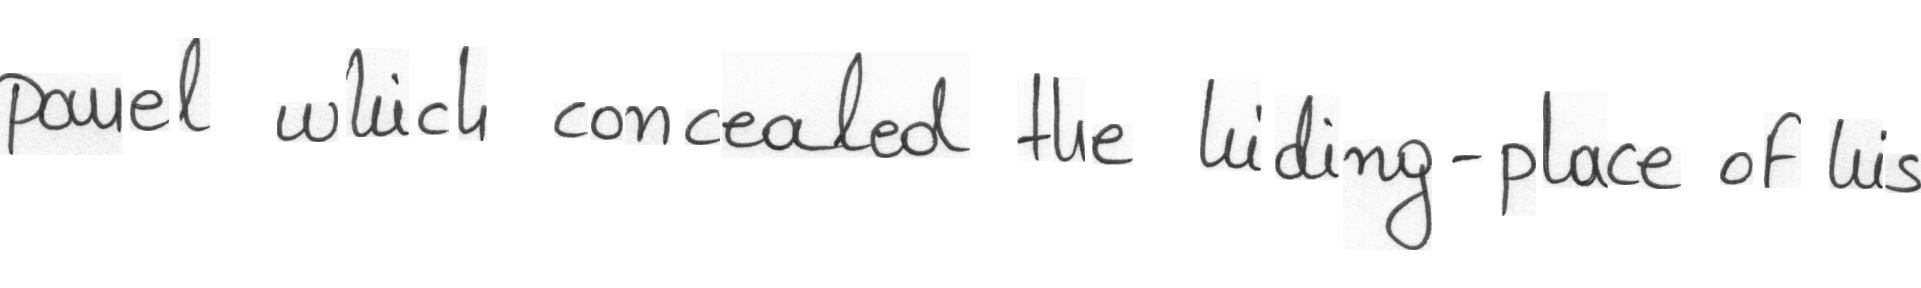 panel which concealed the hiding-place of his